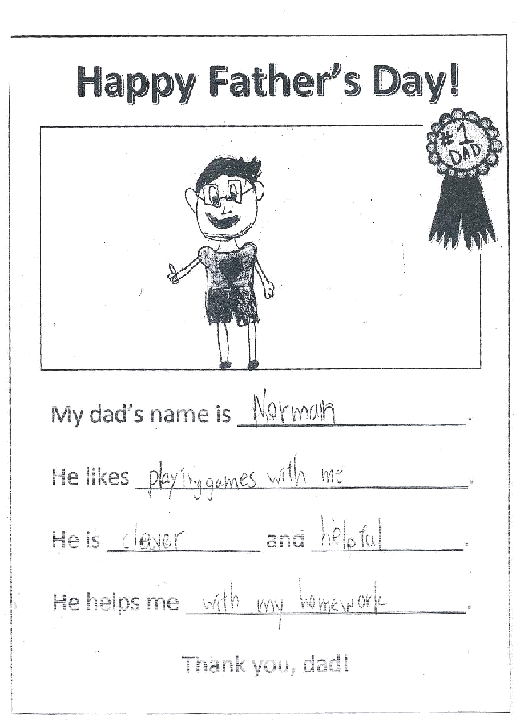 Happy Father's Day!
#1
DAD
My dad's name is Norman.
He likes playing games with me.
He is clever and helpful.
He helps me with my homework.
Thank you, dad!